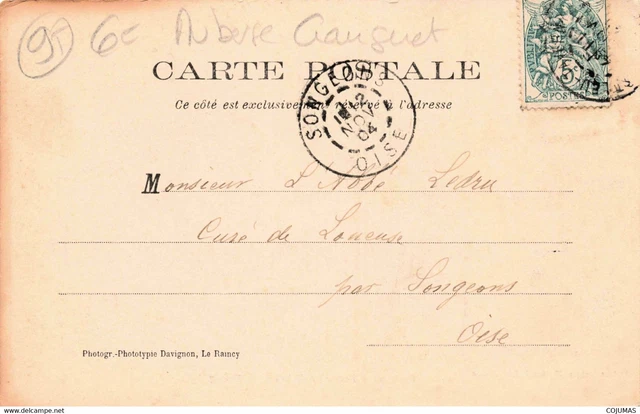 95 6€ Auberge Gauguet
CARTE POSTALE
Ce côté est exclusivement réservé à l'adresse
SONGEONS
2
NOV
04
OISE
5
POSTES
Monsieur L'Abbé Ledru
Curé de Loueuse
par Songeons
Oise
Photogr.-Phototypie Davignon, Le Raincy
COJUMAS